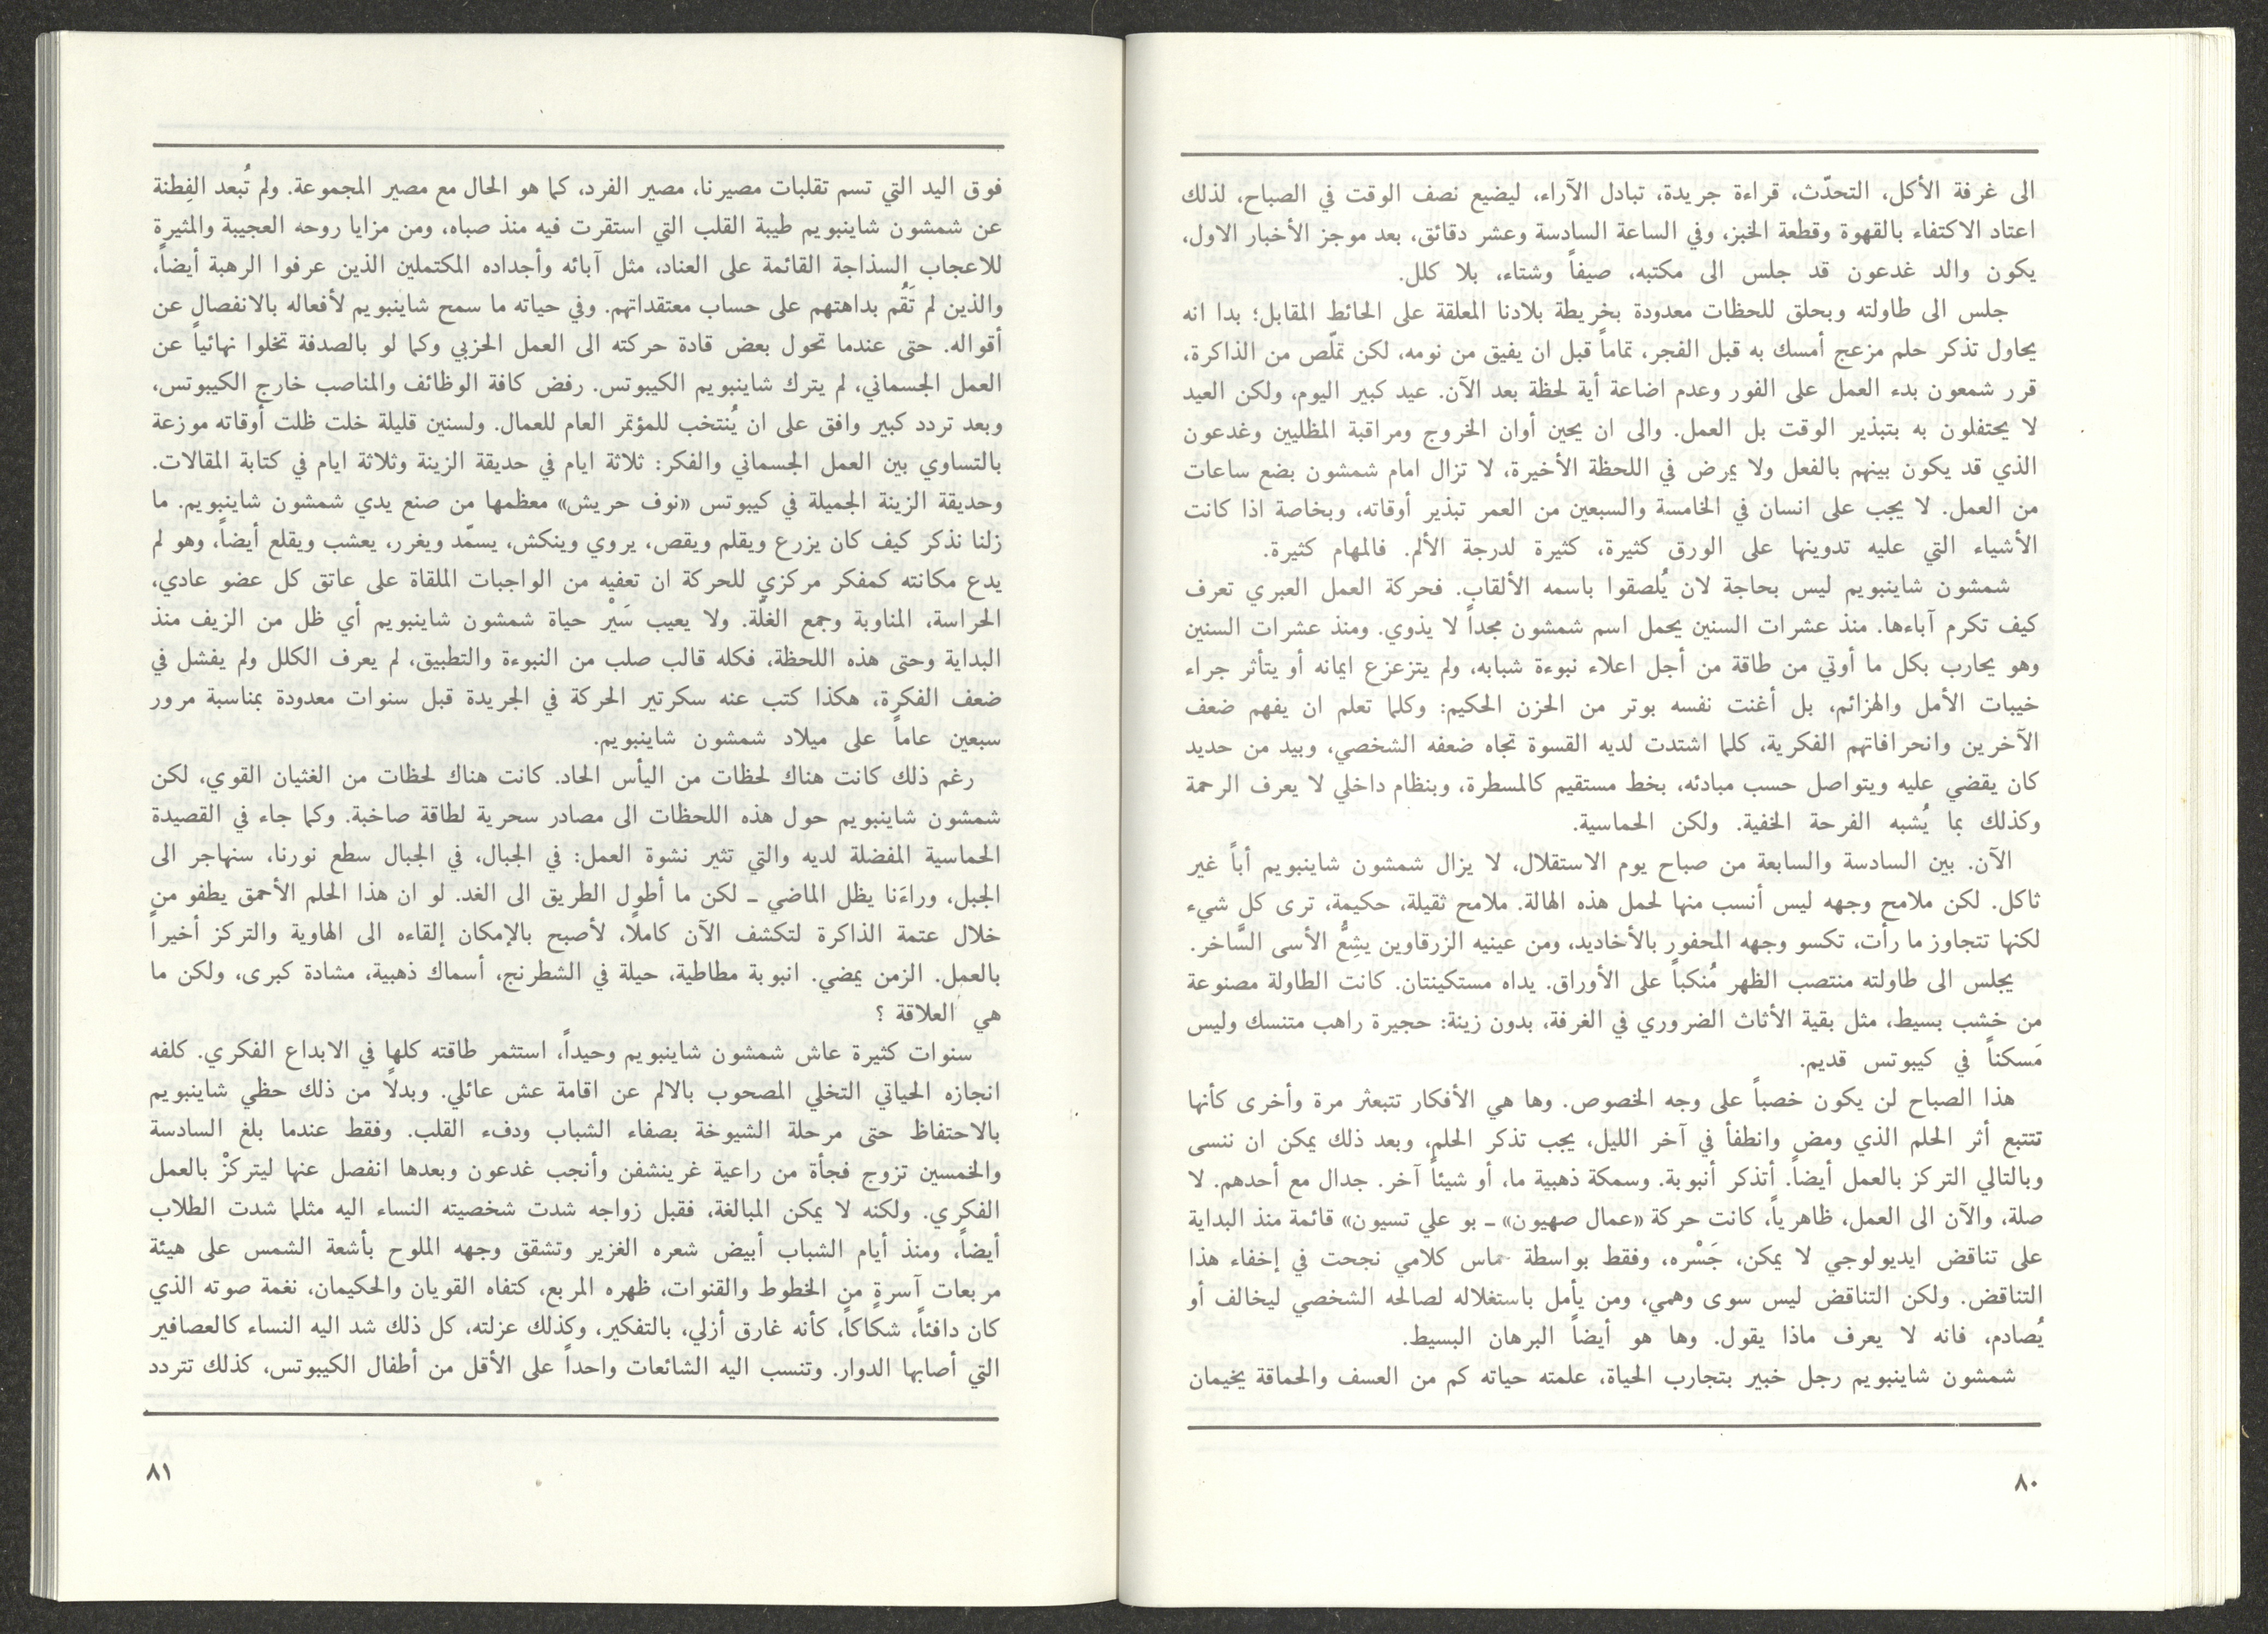 الى غرفة الأكل، التحدّث، قراءة جريدة، تبادل الآراء، ليضيع نصف الوقت في الصباح، لذلك
اعتاد الاكتفاء بالقهوة وقطعة الخبز، وفي الساعة السادسة وعشر دقائق، بعد موجز الأخبار الاول،
يكون والد غدعون قد جلس الى مكتبه، صيفاً وشتاء، بلا كلل.
جلس الى طاولته وبحلق للحظات معدودة بخريطة بلادنا المعلقة على الحائط المقابل؛ بدا انه
يحاول تذكر حلم مزعج أمسك به قبل الفجر، تماماً قبل ان يفيق من نومه، لكن تملّص من الذاكرة،
قرر شمعون بدء العمل على الفور وعدم اضاعة أية لحظة بعد الآن. عيد كبير اليوم، ولكن العيد
لا يحتفلون به بتبذير الوقت بل العمل. والى ان يحين أوان الخروج ومراقبة المظليين وغدعون
الذي قد يكون بينهم بالفعل ولا يمرض في اللحظة الأخيرة، لا تزال امام شمشون بضع ساعات
من العمل. لا يجب على انسان في الخامسة والسبعين من العمر تبذير أوقاته، وبخاصة اذا كانت
الأشياء التي عليه تدوينها على الورق كثيرة، كثيرة لدرجة الألم. فالمهام كثيرة.
شمشون شاينبويم ليس بحاجة لان يُلصقوا باسمه الألقاب. فحركة العمل العبري تعرف
كيف تكرم آباءها. منذ عشرات السنين يحمل اسم شمشون مجداً لا يذوي. ومنذ عشرات السنين
وهو يحارب بكل ما أوتي من طاقة من أجل اعلاء نبوءة شبابه، ولم يتزعزع ايمانه أو يتأثر جراء
خيبات الأمل والهزائم، بل أغنت نفسه بوتر من الحزن الحكيم: وكلما تعلم ان يفهم ضعف
الآخرين وانحرافاتهم الفكرية، كلما اشتدت لديه القسوة تجاه ضعفه الشخصي، وبيد من حديد
كان يقضي عليه ويتواصل حسب مبادئه، بخط مستقيم كالمسطرة، وبنظام داخلي لا يعرف الرحمة
وكذلك بما يُشبه الفرحة الخفية. ولكن الحماسية.
الآن. بين السادسة والسابعة من صباح يوم الاستقلال، لا يزال شمشون شاينبويم أباً غير
ثاكل. لكن ملامح وجهه ليس أنسب منها لحمل هذه الهالة. ملامح ثقيلة، حكيمة، ترى كل شيء
لكنها تتجاوز ما رأت، تكسو وجهه المحفور بالأخاديد، ومن عينيه الزرقاوين يشِعُّ الأسى السَّاخر.
يجلس الى طاولته منتصب الظهر مُنكباً على الأوراق. يداه مستكينتان. كانت الطاولة مصنوعة
من خشب بسيط، مثل بقية الأثاث الضروري في الغرفة، بدون زينة: حجيرة راهب متنسك وليس
مَسكناً في كيبوتس قديم.
هذا الصباح لن يكون خصباً على وجه الخصوص. وها هي الأفكار تتبعثر مرة وأخرى كأنها
تتتبع أثر الحلم الذي ومض وانطفأ في آخر الليل، يجب تذكر الحلم، وبعد ذلك يمكن ان ننسى
وبالتالي التركز بالعمل أيضاً. أتذكر أنبوبة. وسمكة ذهبية ما، أو شيئاً آخر. جدال مع أحدهم. لا
صلة، والآن الى العمل، ظاهرياً، كانت حركة «عمال صهيون» ــ بو علي تسيون» قائمة منذ البداية
على تناقض ايديولوجي لا يمكن، جَسْره، وفقط بواسطة حماس كلامي نجحت في إخفاء هذا
التناقض. ولكن التناقض ليس سوى وهمي، ومن يأمل باستغلاله لصالحه الشخصي ليخالف أو
يُصادم، فانه لا يعرف ماذا يقول. وها هو أيضاً البرهان البسيط.
شمشون شاينبويم رجل خبير بتجارب الحياة، علمته حياته كم من العسف والحماقة يخيمان
٨٠
فوق اليد التي تسم تقلبات مصيرنا، مصير الفرد، كما هو الحال مع مصير المجموعة. ولم تُبعد الفِطنة
عن شمشون شاينبويم طيبة القلب التي استقرت فيه منذ صباه، ومن مزايا روحه العجيبة والمثيرة
للاعجاب السذاجة القائمة على العناد، مثل آبائه وأجداده المكتملين الذين عرفوا الرهبة أيضاً،
والذين لم تَقُم بداهتهم على حساب معتقداتهم. وفي حياته ما سمح شاينبويم لأفعاله بالانفصال عن
أقواله. حتى عندما تحول بعض قادة حركته الى العمل الحزبي وكما لو بالصدفة تخلوا نهائياً عن
العمل الجسماني، لم يترك شاينبويم الكيبوتس. رفض كافة الوظائف والمناصب خارج الكيبوتس،
وبعد تردد كبير وافق على ان يُنتخب للمؤتمر العام للعمال. ولسنين قليلة خلت ظلت أوقاته موزعة
بالتساوي بين العمل الجسماني والفكر: ثلاثة ايام في حديقة الزينة وثلاثة ايام في كتابة المقالات.
وحديقة الزينة الجميلة في كيبوتس «نوف حريش» معظمها من صنع يدي شمشون شاينبويم. ما
زلنا نذكر كيف كان يزرع ويقلم ويقص، يروي وينكش، يسمّد ويغرر، يعشب ويقلع أيضاً، وهو لم
يدع مكانته كمفكر مركزي للحركة ان تعفيه من الواجبات الملقاة على عاتق كل عضو عادي،
الحراسة، المناوبة وجمع الغلّة. ولا يعيب سَيْر حياة شمشون شاينبويم أي ظل من الزيف منذ
البداية وحتى هذه اللحظة، فكله قالب صلب من النبوءة والتطبيق، لم يعرف الكلل ولم يفشل في
ضعف الفكرة، هكذا كتب عنه سكرتير الحركة في الجريدة قبل سنوات معدودة بمناسبة مرور
سبعين عاماً على ميلاد شمشون شاينبويم.
رغم ذلك كانت هناك لحظات من اليأس الحاد. كانت هناك لحظات من الغثيان القوي، لكن
شمشون شاينبويم حول هذه اللحظات الى مصادر سحرية لطاقة صاخبة. وكما جاء في القصيدة
الحماسية المفضلة لديه والتي تثير نشوة العمل: في الجبال، في الجبال سطع نورنا، سنهاجر الى
الجبل، وراءَنا يظل الماضي ــ لكن ما أطول الطريق الى الغد. لو ان هذا الحلم الأحمق يطفو من
خلال عتمة الذاكرة لتكشف الآن كاملاً، لأصبح بالإمكان إلقاءه الى الهاوية والتركز أخيراً
بالعمل. الزمن يمضي. انبوبة مطاطية، حيلة في الشطرنج، أسماك ذهبية، مشادة كبرى، ولكن ما
هي العلاقة ؟
سنوات كثيرة عاش شمشون شاينبويم وحيداً، استثمر طاقته كلها في الابداع الفكري. كلفه
انجازه الحياتي التخلي المصحوب بالالم عن اقامة عش عائلي. وبدلاً من ذلك حظي شاينبويم
بالاحتفاظ حتى مرحلة الشيوخة بصفاء الشباب ودفء القلب. وفقط عندما بلغ السادسة
والخمسين تزوج فجأة من راعية غرينشفن وأنجب غدعون وبعدها انفصل عنها ليتركزْ بالعمل
الفكري. ولكنه لا يمكن المبالغة، فقبل زواجه شدت شخصيته النساء اليه مثلما شدت الطلاب
أيضاً، ومنذ أيام الشباب أبيض شعره الغزير وتشقق وجهه الملوح بأشعة الشمس على هيئة
مربعات آسرةٍ من الخطوط والقنوات، ظهره المربع، كتفاه القويان والحكيمان، نغمة صوته الذي
كان دافئاً، شكاكاً، كأنه غارق أزلي، بالتفكير، وكذلك عزلته، كل ذلك شد اليه النساء كالعصافير
التي أصابها الدوار. وتنسب اليه الشائعات واحداً على الأقل من أطفال الكيبوتس، كذلك تتردد
٨١